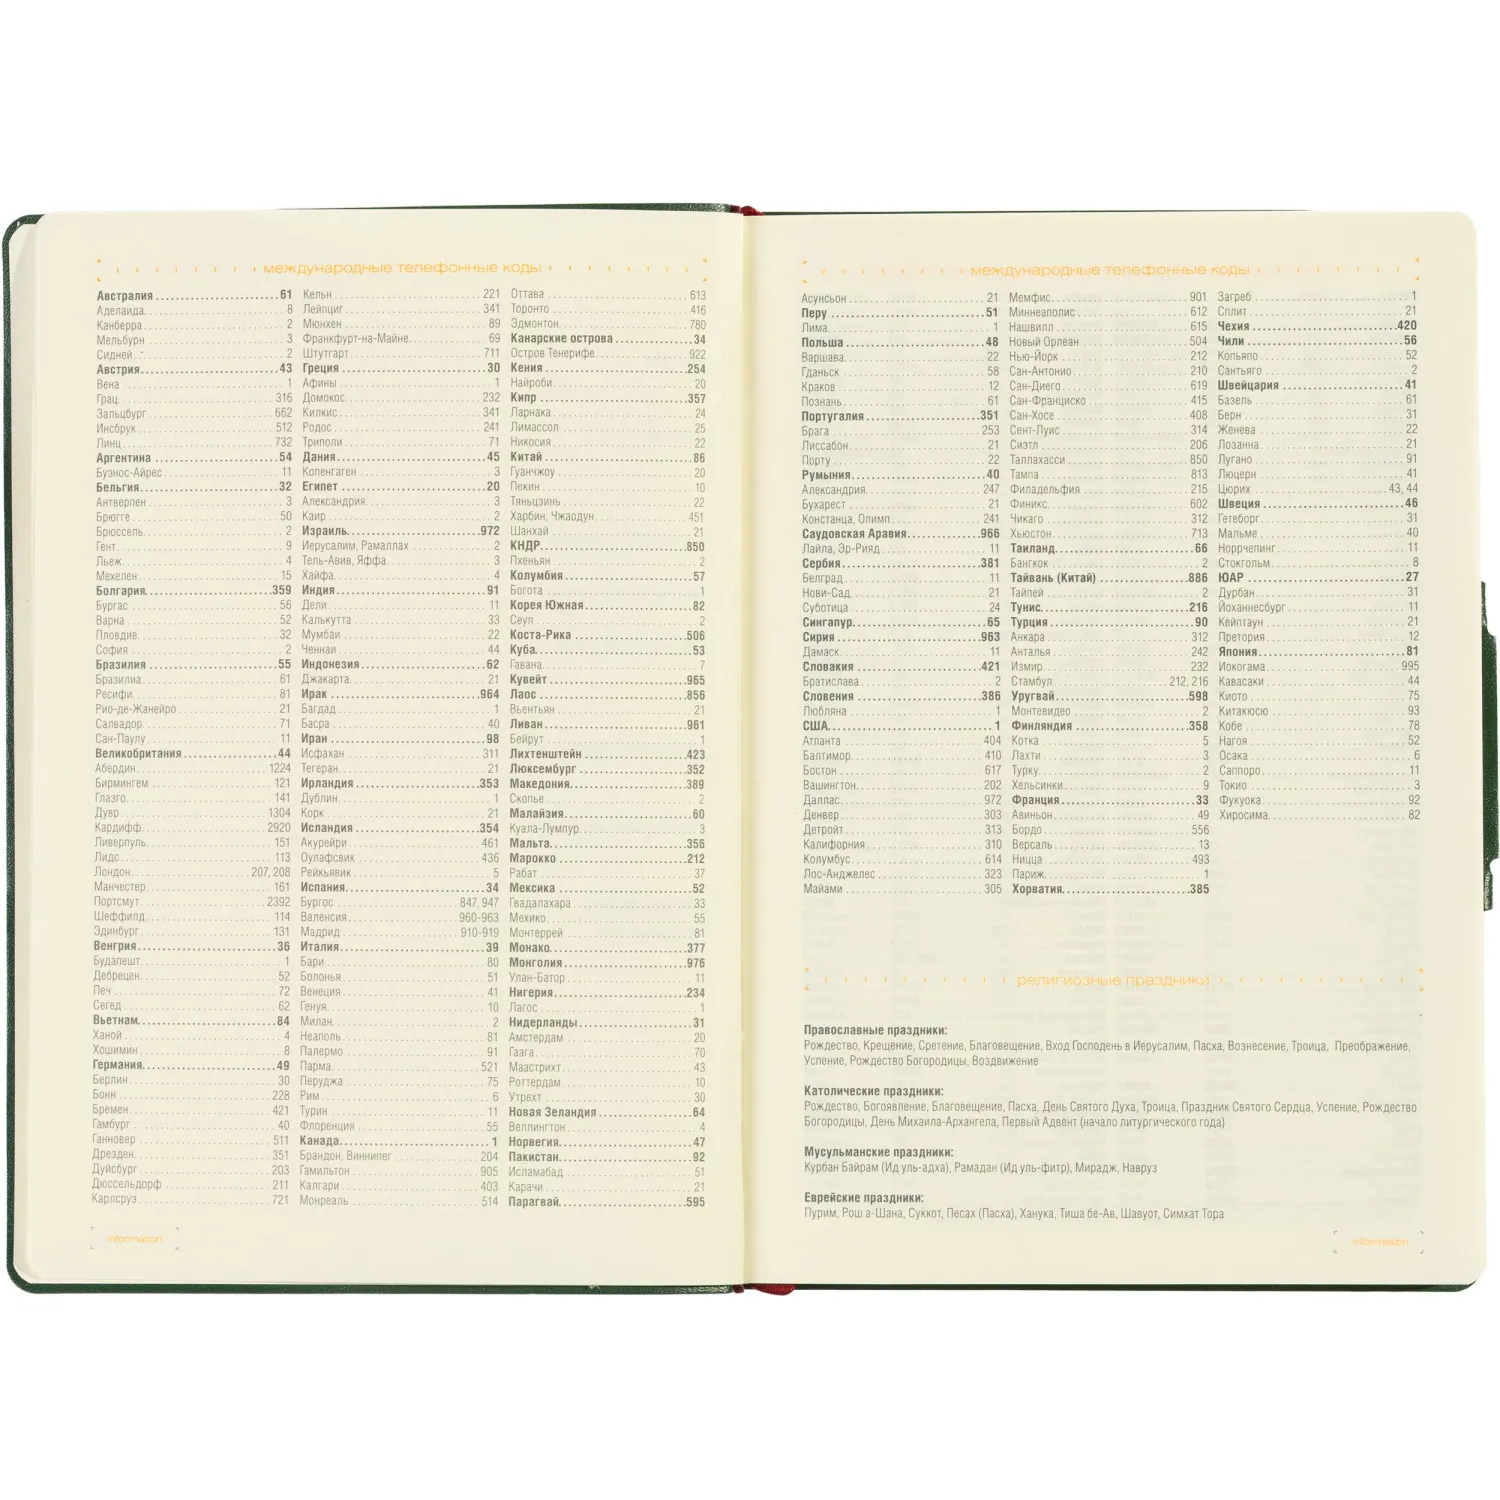 международные телефонные коды
Австралия 61
Аделаида 8
Канберра 2
Мельбурн 3
Сидней 2
Австрия 43
Вена 1
Грац 316
Зальцбург 662
Инсбрук 512
Линц 732
Аргентина 54
Буэнос-Айрес 11
Бельгия 32
Антверпен 3
Брюгге 50
Брюссель 2
Гент 9
Льеж 4
Мехелен 15
Болгария 359
Бургас 56
Варна 52
Пловдив 32
София 2
Бразилия 55
Бразилиа 61
Ресифи 81
Рио-де-Жанейро 21
Салвадор 71
Сан-Паулу 11
Великобритания 44
Абердин 1224
Бирмингем 121
Глазго 141
Дувр 1304
Кардифф 2920
Ливерпуль 151
Лидс 113
Лондон 207, 208
Манчестер 161
Портсмут 2392
Шеффилд 114
Эдинбург 131
Венгрия 36
Будапешт 1
Дебрецен 52
Печ 72
Сегед 62
Вьетнам 84
Ханой 4
Хошимин 8
Германия 49
Берлин 30
Бонн 228
Бремен 421
Гамбург 40
Ганновер 511
Дрезден 351
Дуйсбург 203
Дюссельдорф 211
Карлсруэ 721
Кельн 221
Лейпциг 341
Мюнхен 89
Франкфурт-на-Майне 69
Штутгарт 711
Греция 30
Афины 1
Домокос 232
Килкис 341
Родос 241
Триполи 71
Дания 45
Копенгаген 3
Египет 20
Александрия 3
Каир 2
Израиль 972
Иерусалим, Рамаллах 2
Тель-Авив, Яффа 3
Хайфа 4
Индия 91
Дели 11
Калькутта 33
Мумбаи 22
Ченнаи 44
Индонезия 62
Джакарта 21
Ирак 964
Багдад 1
Басра 40
Иран 98
Исфахан 311
Тегеран 21
Ирландия 353
Дублин 1
Корк 21
Исландия 354
Акурейри 461
Оулафсвик 436
Рейкьявик 5
Испания 34
Бургос 847, 947
Валенсия 960-963
Мадрид 910-919
Италия 39
Бари 80
Болонья 51
Венеция 41
Генуя 10
Милан 2
Неаполь 81
Палермо 91
Парма 521
Перуджа 75
Рим 6
Турин 11
Флоренция 55
Канада 1
Брандон, Виннипег 204
Гамильтон 905
Калгари 403
Монреаль 514
Оттава 613
Торонто 416
Эдмонтон 780
Канарские острова 34
Остров Тенерифе 922
Кения 254
Найроби 20
Кипр 357
Ларнака 24
Лимассол 25
Никосия 22
Китай 86
Гуанчжоу 20
Пекин 10
Тяньцзинь 22
Харбин, Чжаодун 451
Шанхай 21
КНДР 850
Пхеньян 2
Колумбия 57
Богота 1
Корея Южная 82
Сеул 2
Коста-Рика 506
Куба 53
Гавана 7
Кувейт 965
Лаос 856
Вьентьян 21
Ливан 961
Бейрут 1
Лихтенштейн 423
Люксембург 352
Македония 389
Скопье 2
Малайзия 60
Куала-Лумпур 3
Мальта 356
Марокко 212
Рабат 37
Мексика 52
Гвадалахара 33
Мехико 55
Монтеррей 81
Монако 377
Монголия 976
Улан-Батор 11
Нигерия 234
Лагос 1
Нидерланды 31
Амстердам 20
Гаага 70
Маастрихт 43
Роттердам 10
Утрехт 30
Новая Зеландия 64
Веллингтон 4
Норвегия 47
Пакистан 92
Исламабад 51
Карачи 21
Парагвай 595
information
международные телефонные коды
Асунсьон 21
Перу 51
Лима 1
Польша 48
Варшава 22
Гданьск 58
Краков 12
Познань 61
Португалия 351
Брага 253
Лиссабон 21
Порту 22
Румыния 40
Александрия 247
Бухарест 21
Констанца, Олимп 241
Саудовская Аравия 966
Лайла, Эр-Рияд 11
Сербия 381
Белград 11
Нови-Сад 21
Суботица 24
Сингапур 65
Сирия 963
Дамаск 11
Словакия 421
Братислава 2
Словения 386
Любляна 1
США 1
Атланта 404
Балтимор 410
Бостон 617
Вашингтон 202
Даллас 972
Денвер 303
Детройт 313
Калифорния 310
Колумбус 614
Лос-Анджелес 323
Майами 305
Мемфис 901
Миннеаполис 612
Нашвилл 615
Новый Орлеан 504
Нью-Йорк 212
Сан-Антонио 210
Сан-Диего 619
Сан-Франциско 415
Сан-Хосе 408
Сент-Луис 314
Сиэтл 206
Таллахасси 850
Тампа 813
Филадельфия 215
Финикс 602
Чикаго 312
Хьюстон 713
Таиланд 66
Бангкок 2
Тайвань (Китай) 886
Тайпей 2
Тунис 216
Турция 90
Анкара 312
Анталья 242
Измир 232
Стамбул 212, 216
Уругвай 598
Монтевидео 2
Финляндия 358
Котка 5
Лахти 3
Турку 2
Хельсинки 9
Франция 33
Авиньон 49
Бордо 556
Версаль 13
Ницца 493
Париж 1
Хорватия 385
Загреб 1
Сплит 21
Чехия 420
Чили 56
Копьяпо 52
Сантьяго 2
Швейцария 41
Базель 61
Берн 31
Женева 22
Лозанна 21
Лугано 91
Люцерн 41
Цюрих 43, 44
Швеция 46
Гетеборг 31
Мальме 40
Норрчепинг 11
Стокгольм 8
ЮАР 27
Дурбан 31
Йоханнесбург 11
Кейптаун 21
Претория 12
Япония 81
Иокогама 995
Кавасаки 44
Киото 75
Китакюсю 93
Кобе 78
Нагоя 52
Осака 6
Саппоро 11
Токио 3
Фукуока 92
Хиросима 82
религиозные праздники
Православные праздники:
Рождество, Крещение, Сретение, Благовещение, Вход Господень в Иерусалим, Пасха, Вознесение, Троица, Преображение,
Успение, Рождество Богородицы, Воздвижение
Католические праздники:
Рождество, Богоявление, Благовещение, Пасха, День Святого Духа, Троица, Праздник Святого Сердца, Успение, Рождество
Богородицы, День Михаила-Архангела, Первый Адвент (начало литургического года)
Мусульманские праздники:
Курбан Байрам (Ид уль-адха), Рамадан (Ид уль-фитр), Мирадж, Навруз
Еврейские праздники:
Пурим, Рош а-Шана, Суккот, Песах (Пасха), Ханука, Тиша бе-Ав, Шавуот, Симхат Тора
information